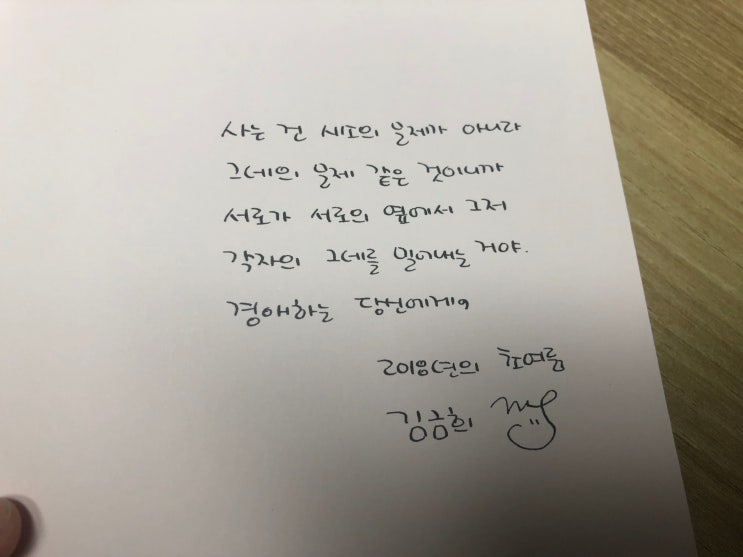 사는 건 시소의 문제가 아니라
그네의 문제 같은 것이니까
서로가 서로의 옆에서 그저
각자의 그네를 밀어내는 거야.
경애하는 당신에게,
2018년의 첫여름
김금희